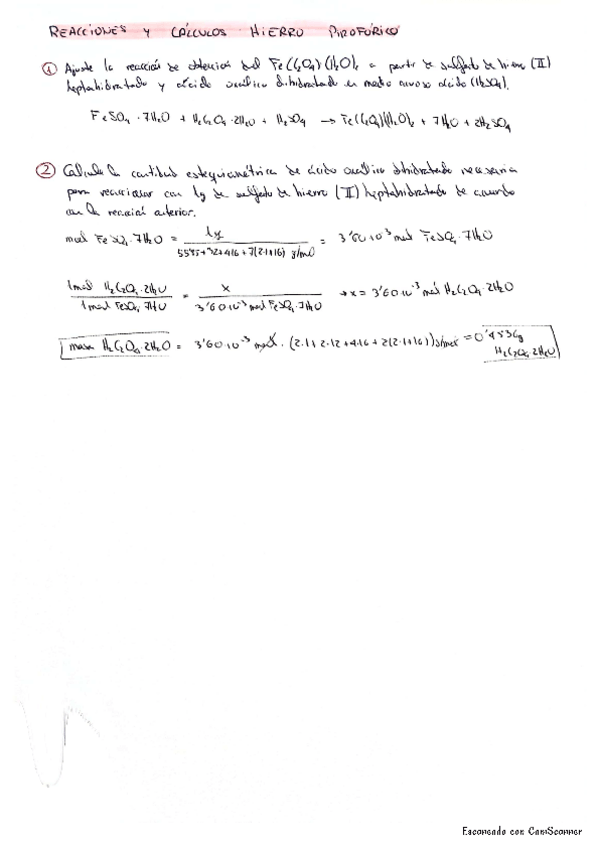 REACCIONES Y CÁLCULOS HIERRO PIROFÓRICO
① Ajuste la reacción de obtención del Fe(C₂O₄)(H₂O)₂ a partir de sulfato de hierro (II)
heptahidratado y ácido oxálico dihidratado en medio acuoso ácido (H₂SO₄).
FeSO₄ · 7H₂O + H₂C₂O₄ · 2H₂O + H₂SO₄ → Fe(C₂O₄)(H₂O)₂ + 7H₂O + 2H₂SO₄
② Calcula la cantidad estequiométrica de ácido oxálico dihidratado necesaria
para reaccionar con 1g de sulfato de hierro (II) heptahidratado de acuerdo
con la reacción anterior.
mol FeSO₄ · 7H₂O = 1g / 55'85+32+4·16+7(2·1+16) g/mol = 3'60·10⁻³ mol FeSO₄ · 7H₂O
1 mol H₂C₂O₄ · 2H₂O / 1 mol FeSO₄ · 7H₂O = x / 3'60·10⁻³ mol FeSO₄ · 7H₂O → x = 3'60·10⁻³ mol H₂C₂O₄ · 2H₂O
masa H₂C₂O₄ · 2H₂O = 3'60·10⁻³ mol · (2·1+2·12+4·16+2(2·1+16)) g/mol = 0'4536g
H₂C₂O₄ · 2H₂O
Escaneado con CamScanner